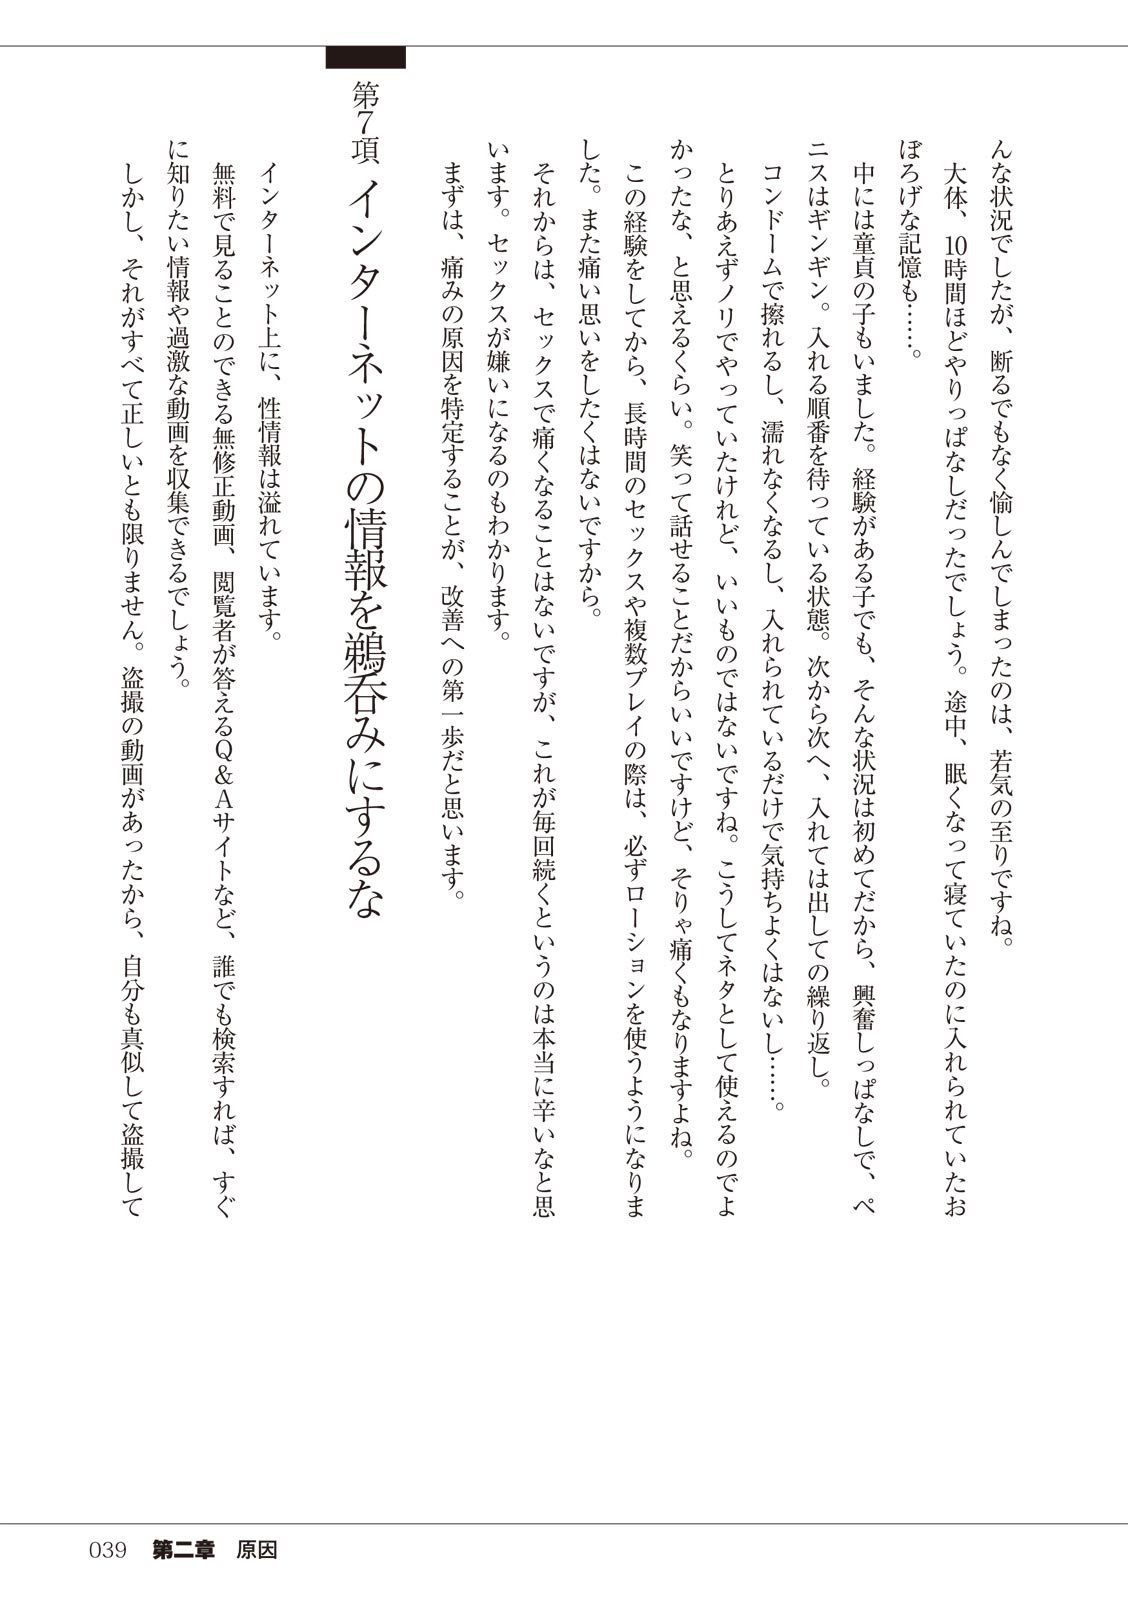 んな状況でしたが、断るでもなく愉しんでしまったのは、若気の至りですね。
大体、10時間ほどやりっぱなしだったでしょう。途中、眠くなって寝ていたのに入れられていたお
ぼろげな記憶も……。
中には童貞の子もいました。経験がある子でも、そんな状況は初めてだから、興奮しっぱなしで、ペ
ニスはギンギン。入れる順番を待っている状態。次から次へ、入れては出しての繰り返し。
コンドームで擦れるし、濡れなくなるし、入れられているだけで気持ちよくはないし……。
とりあえずノリでやっていたけれど、いいものではないですね。こうしてネタとして使えるのでよ
かったな、と思えるくらい。笑って話せることだからいいですけど、そりゃ痛くもなりますよね。
この経験をしてから、長時間のセックスや複数プレイの際は、必ずローションを使うようになりま
した。また痛い思いをしたくはないですから。
それからは、セックスで痛くなることはないですが、これが毎回続くというのは本当に辛いなと思
います。セックスが嫌いになるのもわかります。
まずは、痛みの原因を特定することが、改善への第一歩だと思います。
第7項 インターネットの情報を鵜呑みにするな
インターネット上に、性情報は溢れています。
無料で見ることのできる無修正動画、閲覧者が答えるQ&Aサイトなど、誰でも検索すれば、すぐ
に知りたい情報や過激な動画を収集できるでしょう。
しかし、それがすべて正しいとも限りません。盗撮の動画があったから、自分も真似して盗撮して
039 第二章 原因